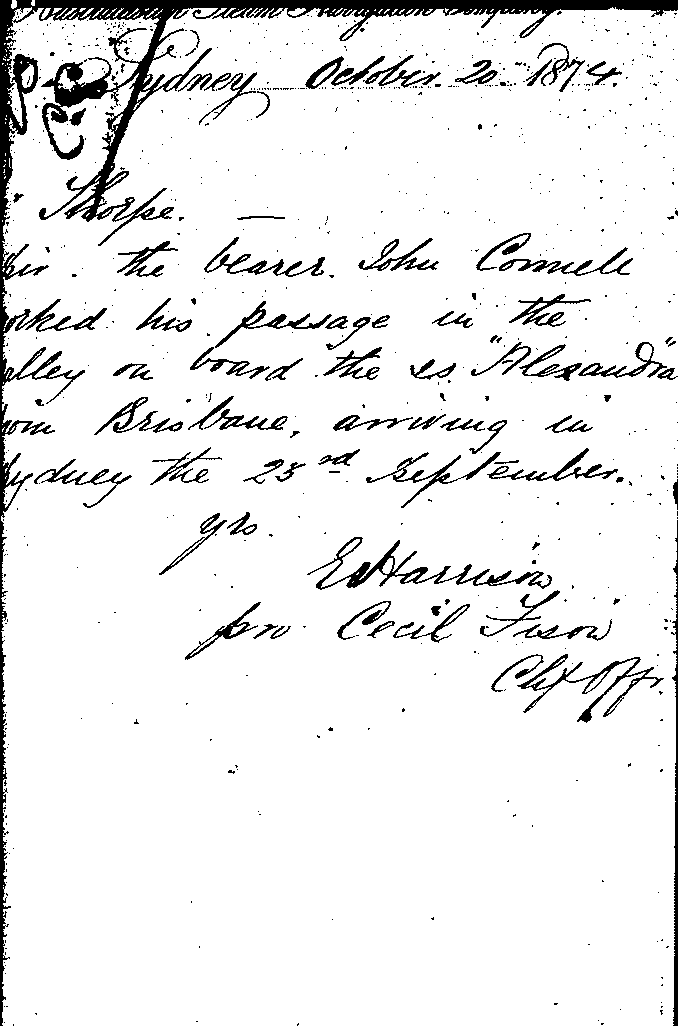 Steam Navigation Company.
Sydney October. 20. 1874.
Thorpe. —
Sir. the bearer. John Connell
orked his passage in the
alley on board the ss. "Alexandra"
rom Brisbane, arriving in
Sydney the 23rd September.
yrs.
E Harrison
pro Cecil Fison